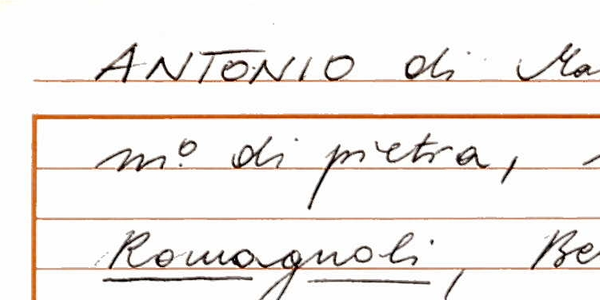 ANTONIO di Ma
mº di pietra,
Romagnoli, Be